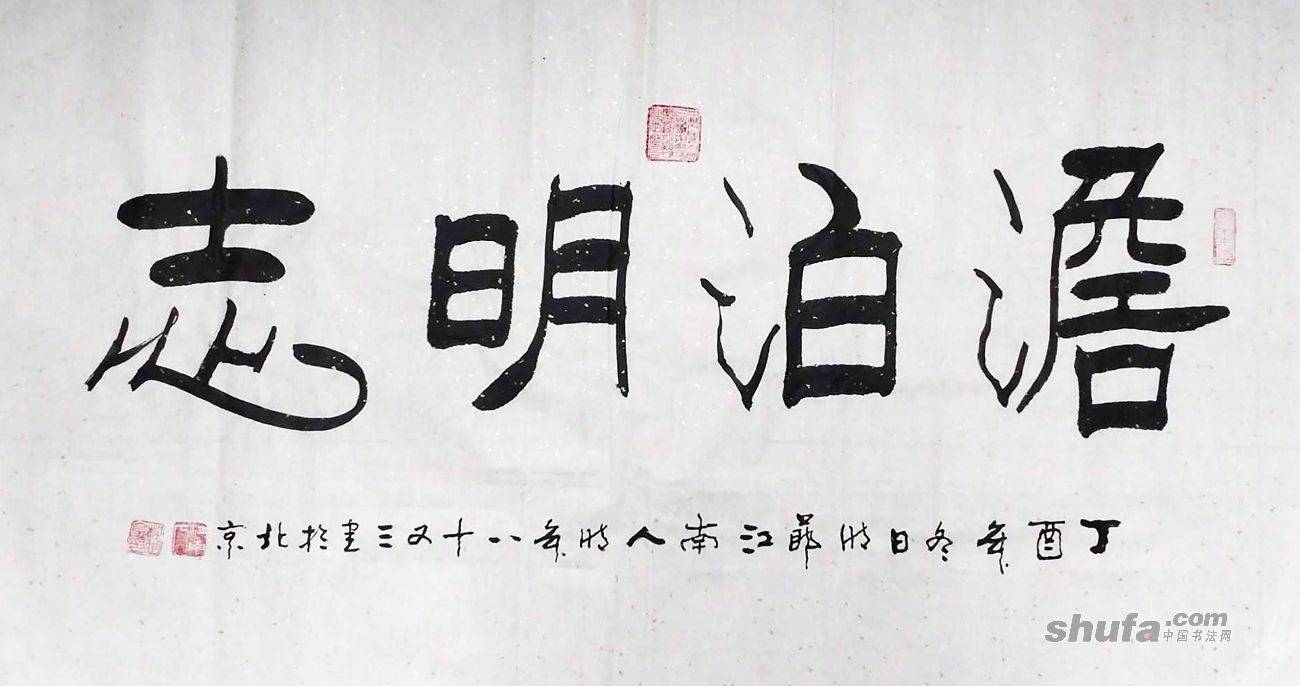 澹泊明志
丁酉年冬日江南人時年八十又三書於北京
shufa.com
中国书法网